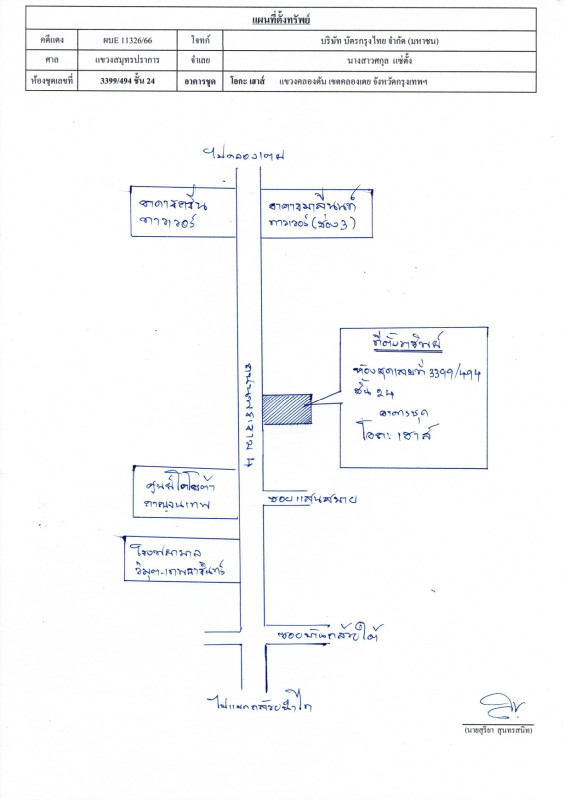 แผนที่ตั้งทรัพย์
คดีแดง ผบE 11326/66 โจทก์ บริษัท บัตรกรุงไทย จำกัด (มหาชน)
ศาล แขวงสมุทรปราการ จำเลย นางสาวศกุล แซ่ตั้ง
ห้องชุดเลขที่ 3399/494 ชั้น 24 อาคารชุด โอกะ เฮาส์ แขวงคลองตัน เขตคลองเตย จังหวัดกรุงเทพฯ
ไปคลองเตย
อาคารกรีน
ทาวเวอร์
อาคารมาลีนนท์
ทาวเวอร์ (ช่อง 3)
ที่ตั้งทรัพย์
ห้องชุดเลขที่ 3399/494
ชั้น 24
อาคารชุด
โอกะ เฮาส์
ถนนพระราม 4
ศูนย์โตโยต้า
กาญจนเทพ
ซอยแสนสบาย
โรงพยาบาล
วิมุต-เทพธารินทร์
ซอยบ้านกล้วยใต้
ไปแยกกล้วยน้ำไท
(นายสุริยา สุนทรสนิท)